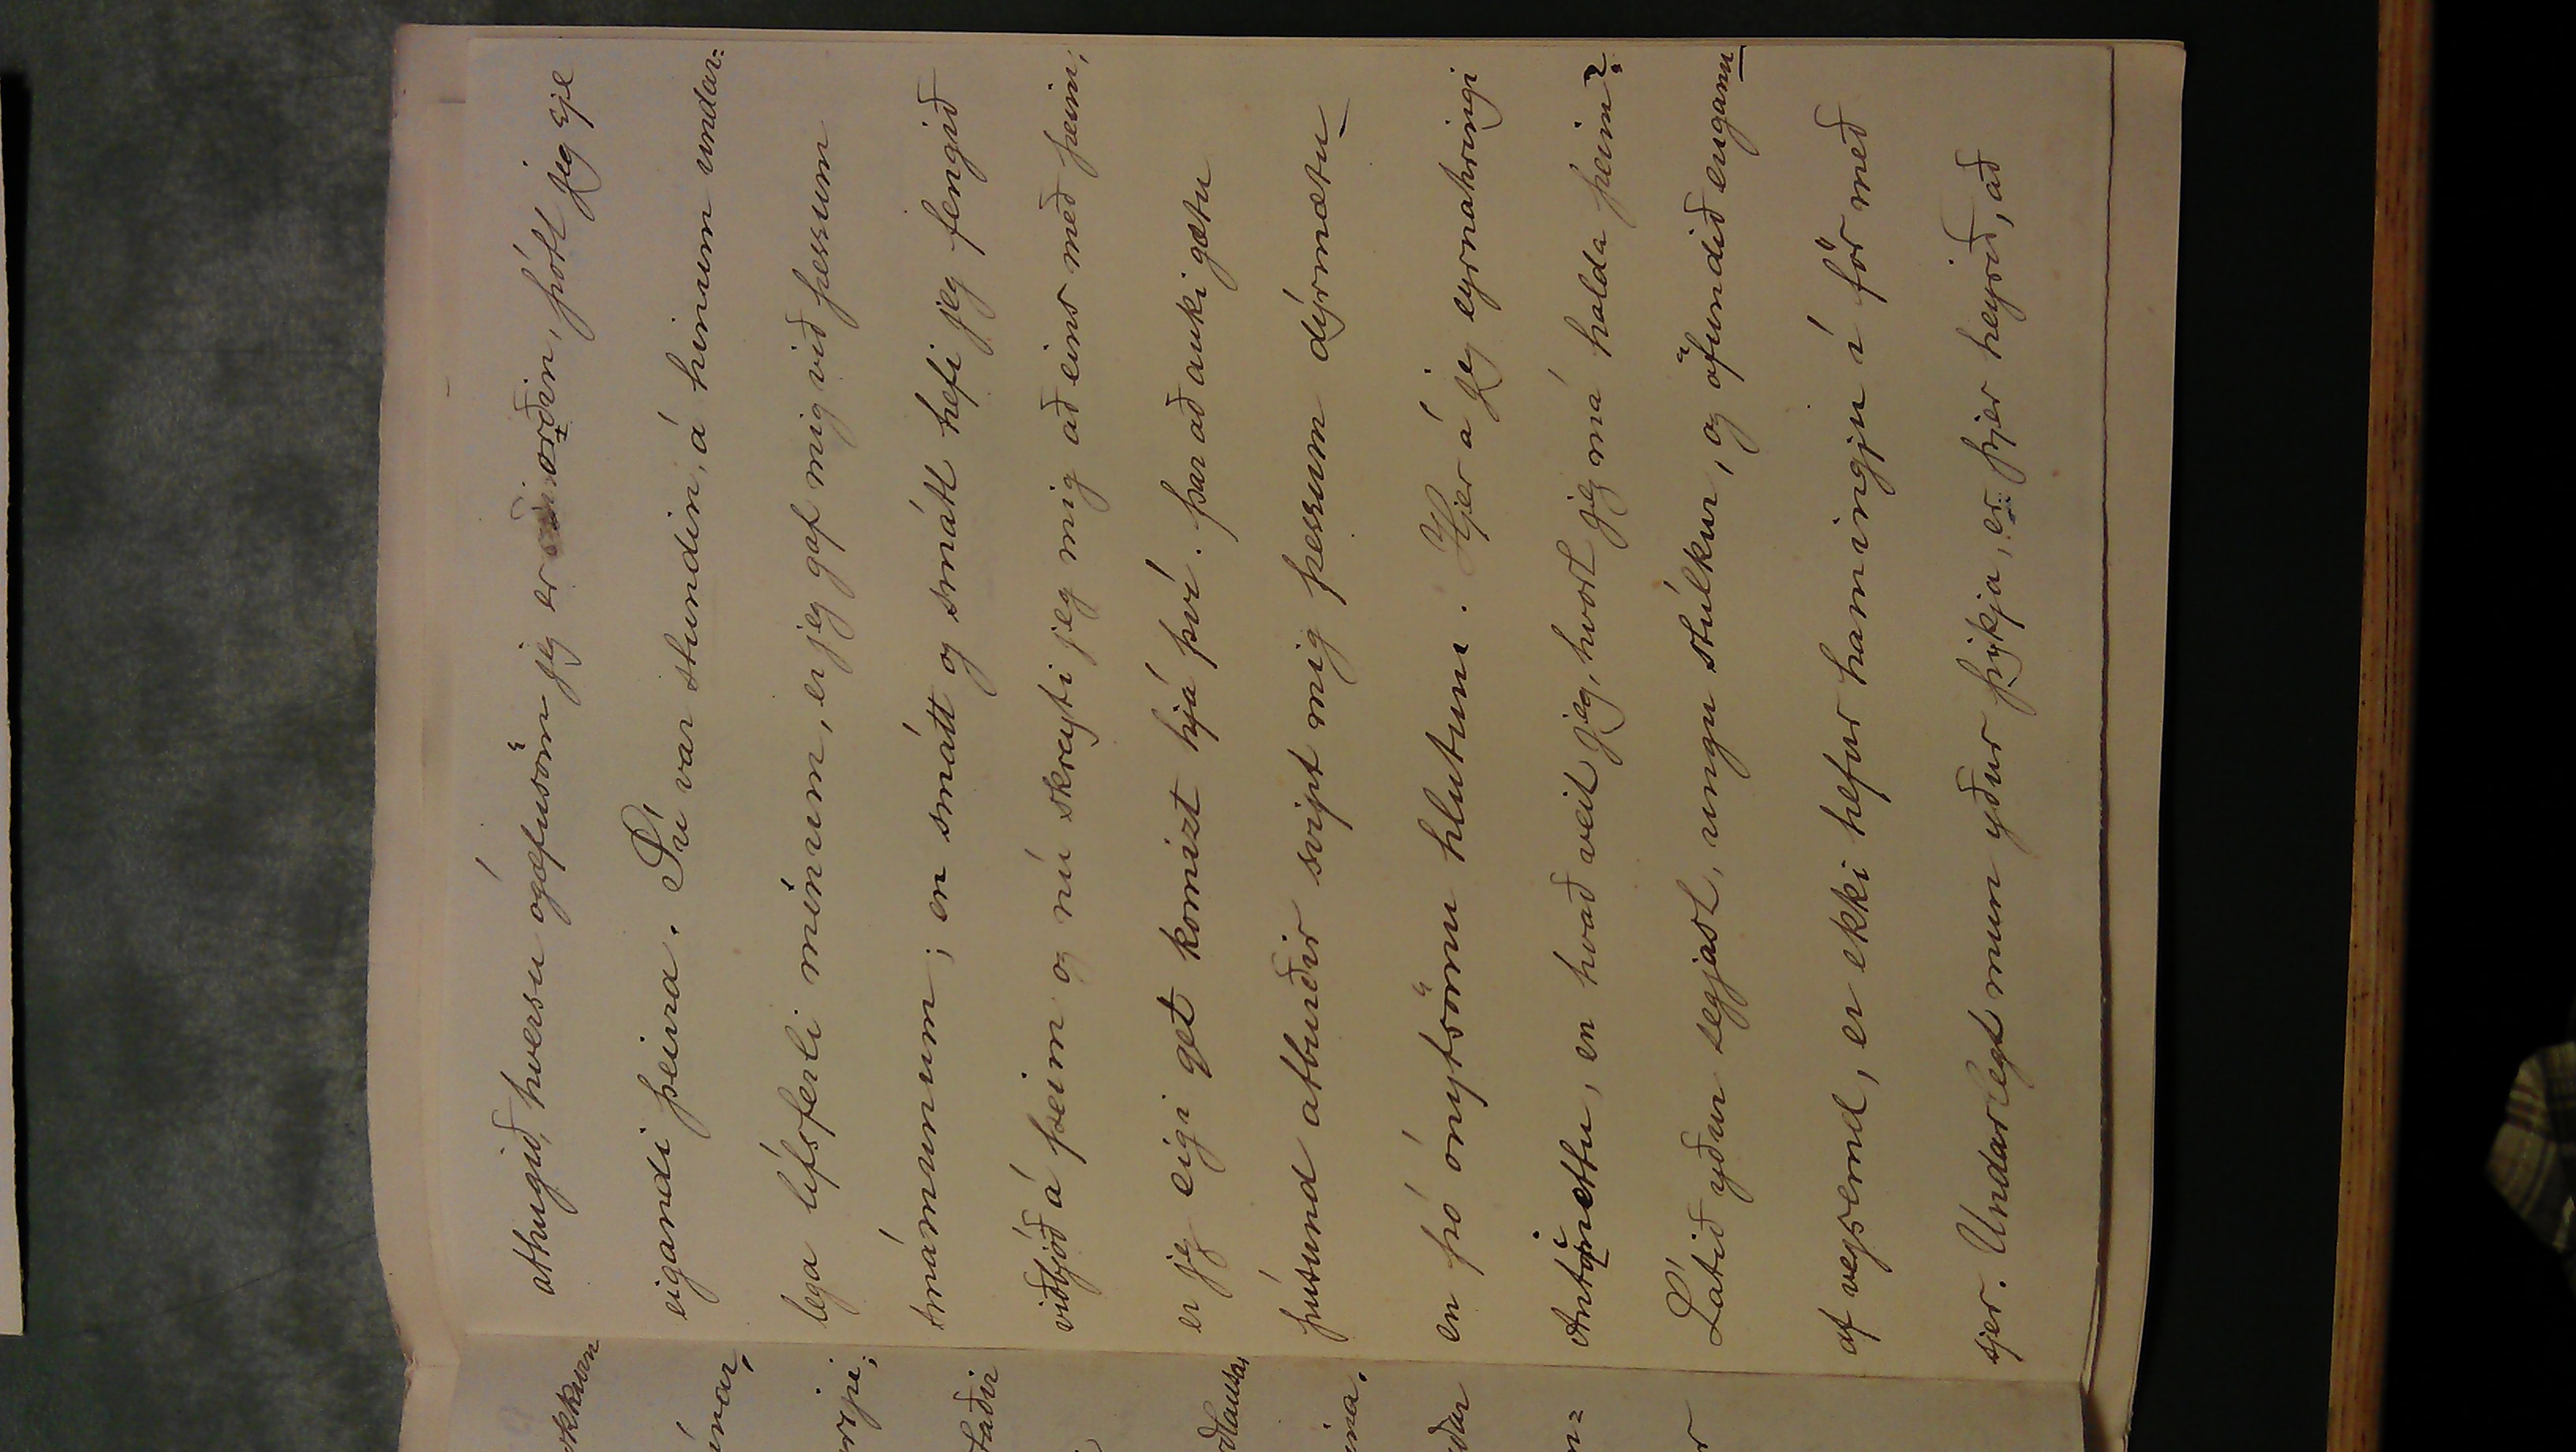 athugið, hversu ógæfusöm jeg er orðin, þótt jeg sje
eigandi þeirra. Sú var stundin, á hinum undar=
lega lífsferli mínum, er jeg gaf mig við þessum
smámunum; en smátt og smátt hefi jeg fengið
viðbjóð á þeim og nú skreyti jeg mig að eins með þeim,
er jeg eigi get komizt hjá því. Þar að auki gætu
þúsund atburðir svipt mig þessum dýrmætu
en þó ónytsömu hlutum. Hjer á jeg eyrnahringi
Antoinettu, en hvað veit jeg, hvort jeg má halda þeim?
Látið yður segjast, ungu stúlkur, og öfundið engann
af vegsemd, er ekki hefur hamingju í för með
sjer. Undarlegt mun yður þykja, er þjer heyrið, að
okkurn
ínar,
gripi;
taðir
ðlausar,
ína.
ðar
n=
r